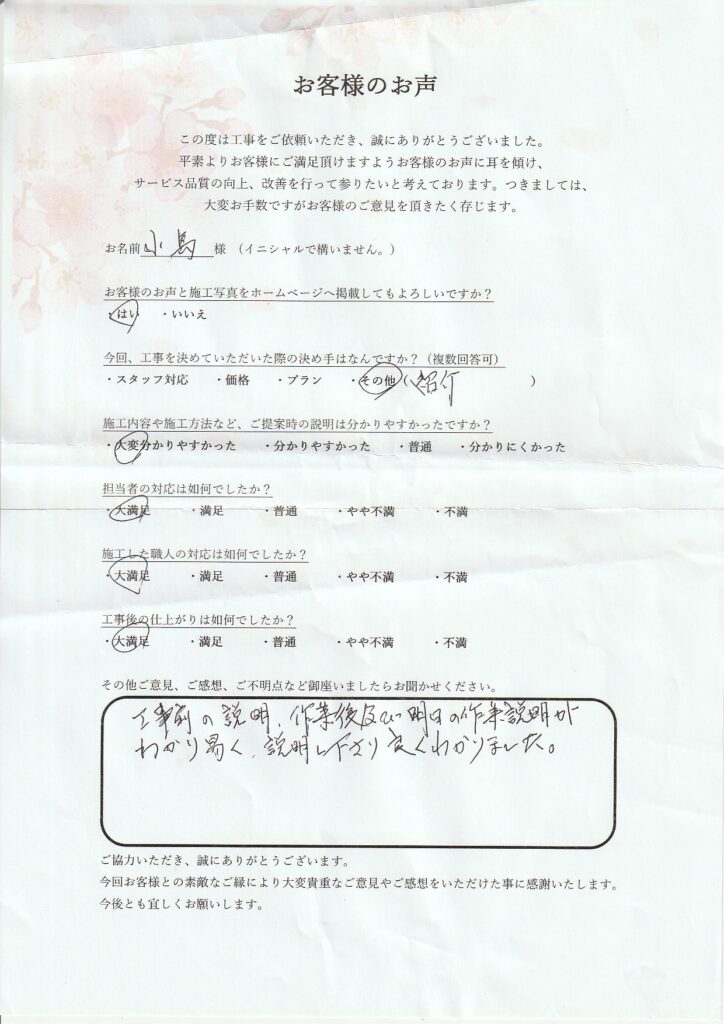 お客様のお声
この度は工事をご依頼いただき、誠にありがとうございました。
平素よりお客様にご満足頂けますようお客様のお声に耳を傾け、
サービス品質の向上、改善を行って参りたいと考えております。つきましては、
大変お手数ですがお客様のご意見を頂きたく存じます。
お名前 小島 様 （イニシャルで構いません。）
お客様のお声と施工写真をホームページへ掲載してもよろしいですか？
・はい ・いいえ
今回、工事を決めていただいた際の決め手はなんですか？（複数回答可）
・スタッフ対応 ・価格 ・プラン ・その他（紹介）
施工内容や施工方法など、ご提案時の説明は分かりやすかったですか？
・大変分かりやすかった ・分かりやすかった ・普通 ・分かりにくかった
担当者の対応は如何でしたか？
・大満足 ・満足 ・普通 ・やや不満 ・不満
施工した職人の対応は如何でしたか？
・大満足 ・満足 ・普通 ・やや不満 ・不満
工事後の仕上がりは如何でしたか？
・大満足 ・満足 ・普通 ・やや不満 ・不満
その他ご意見、ご感想、ご不明点など御座いましたらお聞かせください。
工事前の説明、作業後及び明日の作業説明が
わかり易く、説明し下さり良くわかりました。
ご協力いただき、誠にありがとうございます。
今回お客様との素敵なご縁により大変貴重なご意見やご感想をいただけた事に感謝いたします。
今後とも宜しくお願いします。